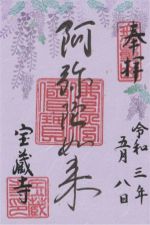 奉拝
令和三年
五月八日
阿弥陀如来
宝蔵寺